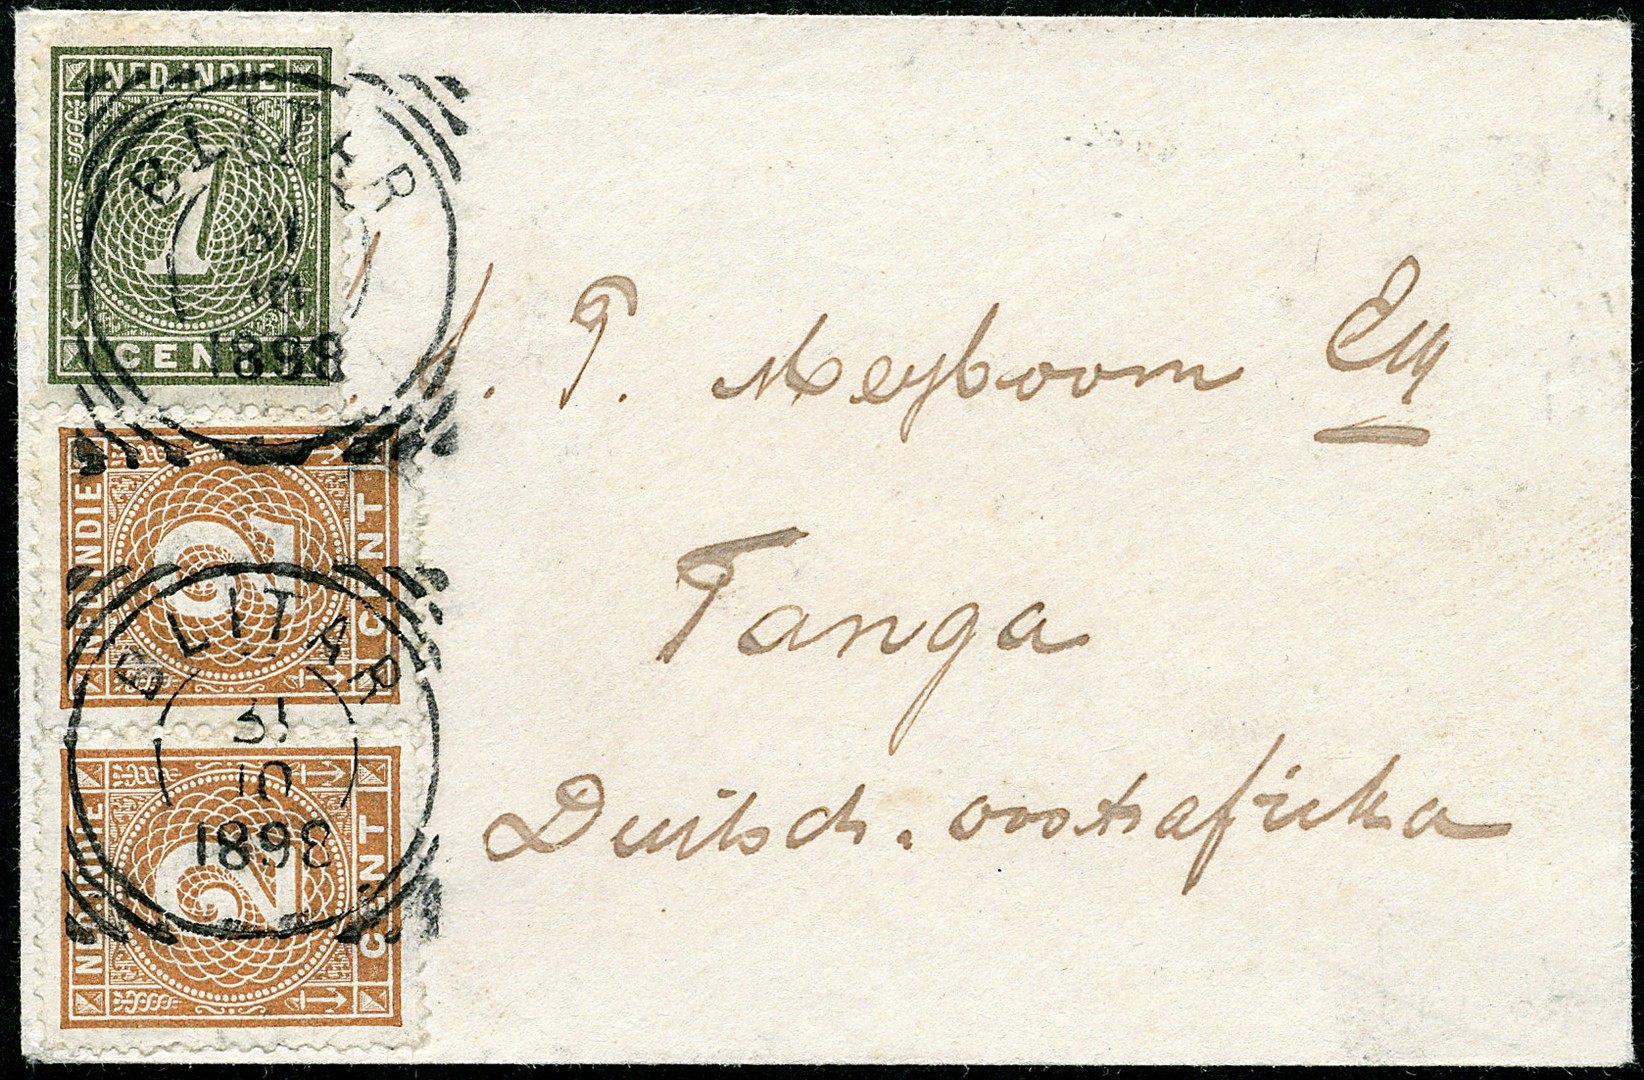 NED. INDIE
1
CENT
BLITAR
31
10
1898
NED. INDIE
2
CENT
BLITAR
31
10
1898
NED. INDIE
2
CENT
P. Meyboom Esq
Tanga
Duitsch. oostafrika